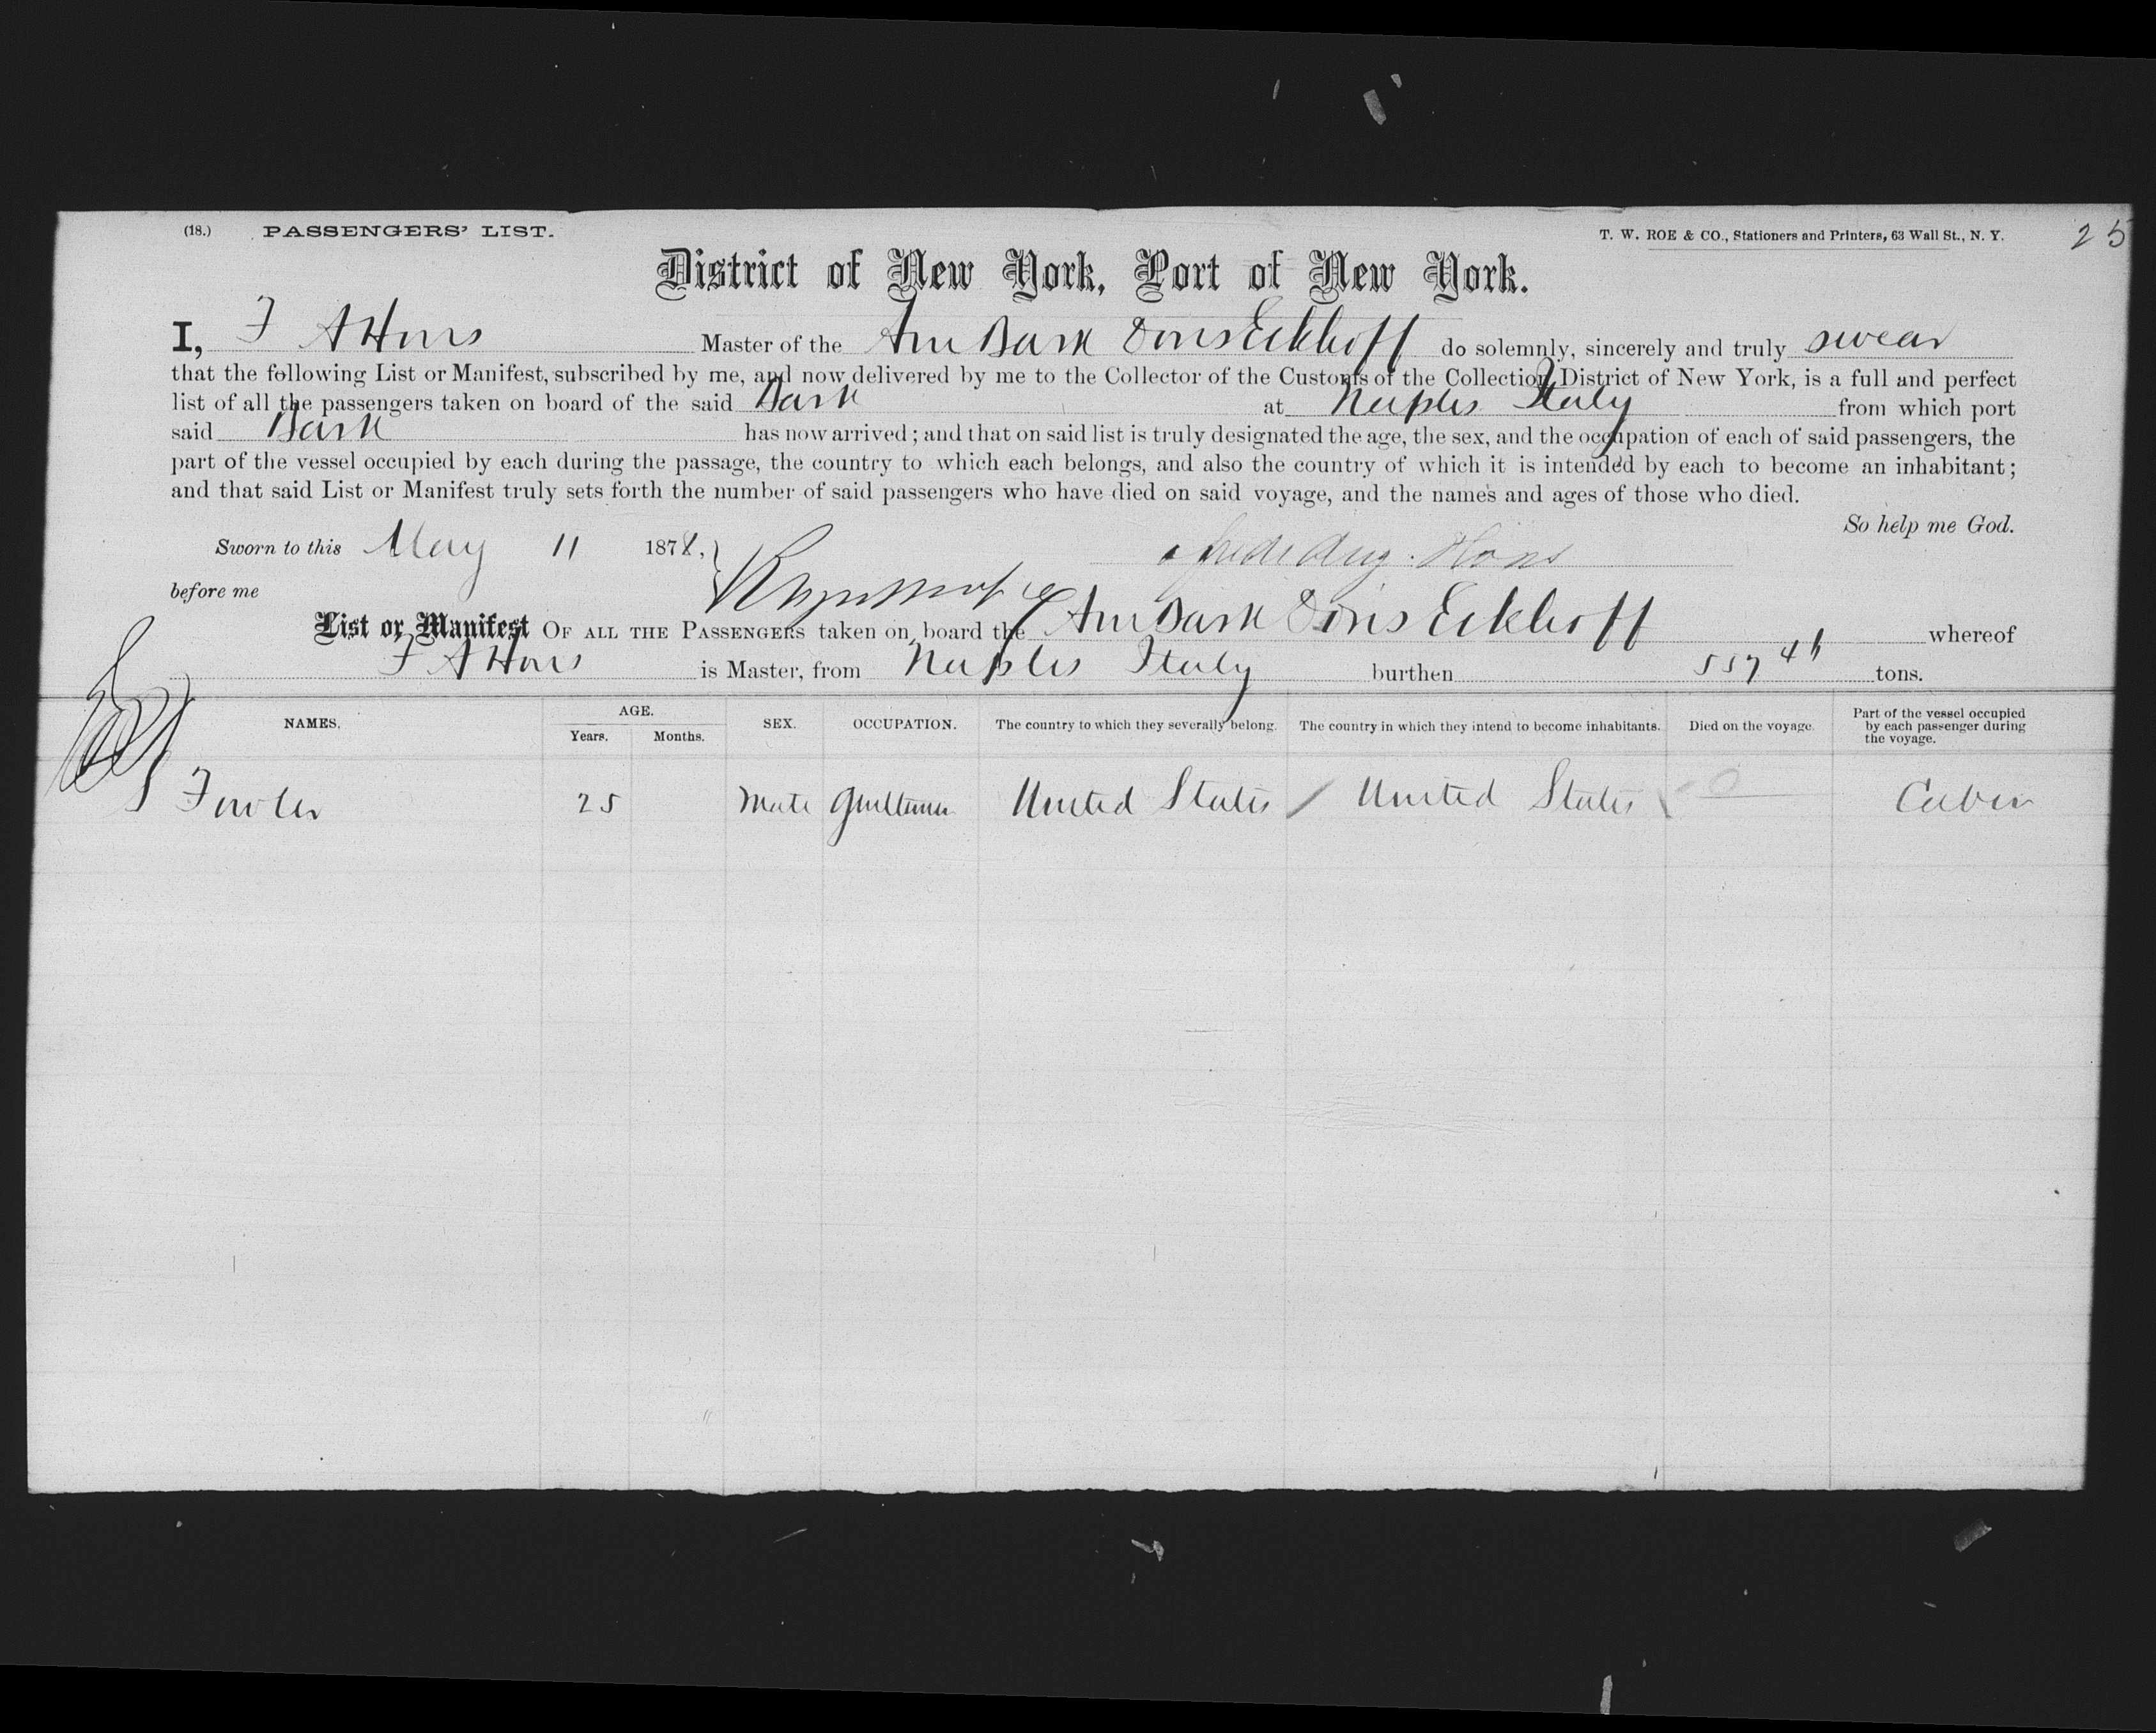 (18.) PASSENGERS' LIST. T. W. ROE & CO., Stationers and Printers, 63 Wall St., N. Y. 25
District of New York, Port of New York.
I, F A Hons Master of the Am Bark Doris Eckhoff do solemnly, sincerely and truly swear
that the following List or Manifest, subscribed by me, and now delivered by me to the Collector of the Customs of the Collection District of New York, is a full and perfect
list of all the passengers taken on board of the said Bark at Naples Italy from which port
said Bark has now arrived; and that on said list is truly designated the age, the sex, and the occupation of each of said passengers, the
part of the vessel occupied by each during the passage, the country to which each belongs, and also the country of which it is intended by each to become an inhabitant;
and that said List or Manifest truly sets forth the number of said passengers who have died on said voyage, and the names and ages of those who died.
So help me God.
Sworn to this May 11 1878, Hons
before me
List or Manifest OF ALL THE PASSENGERS taken on board the Am Bark Doris Eckhoff whereof
F A Hons is Master, from Naples Italy burthen 557 tons.
NAMES. AGE. Years. Months. SEX. OCCUPATION. The country to which they severally belong. The country in which they intend to become inhabitants. Died on the voyage. Part of the vessel occupied by each passenger during the voyage.
Fowler 25 Male Gentleman United States / United States 0 Cabin